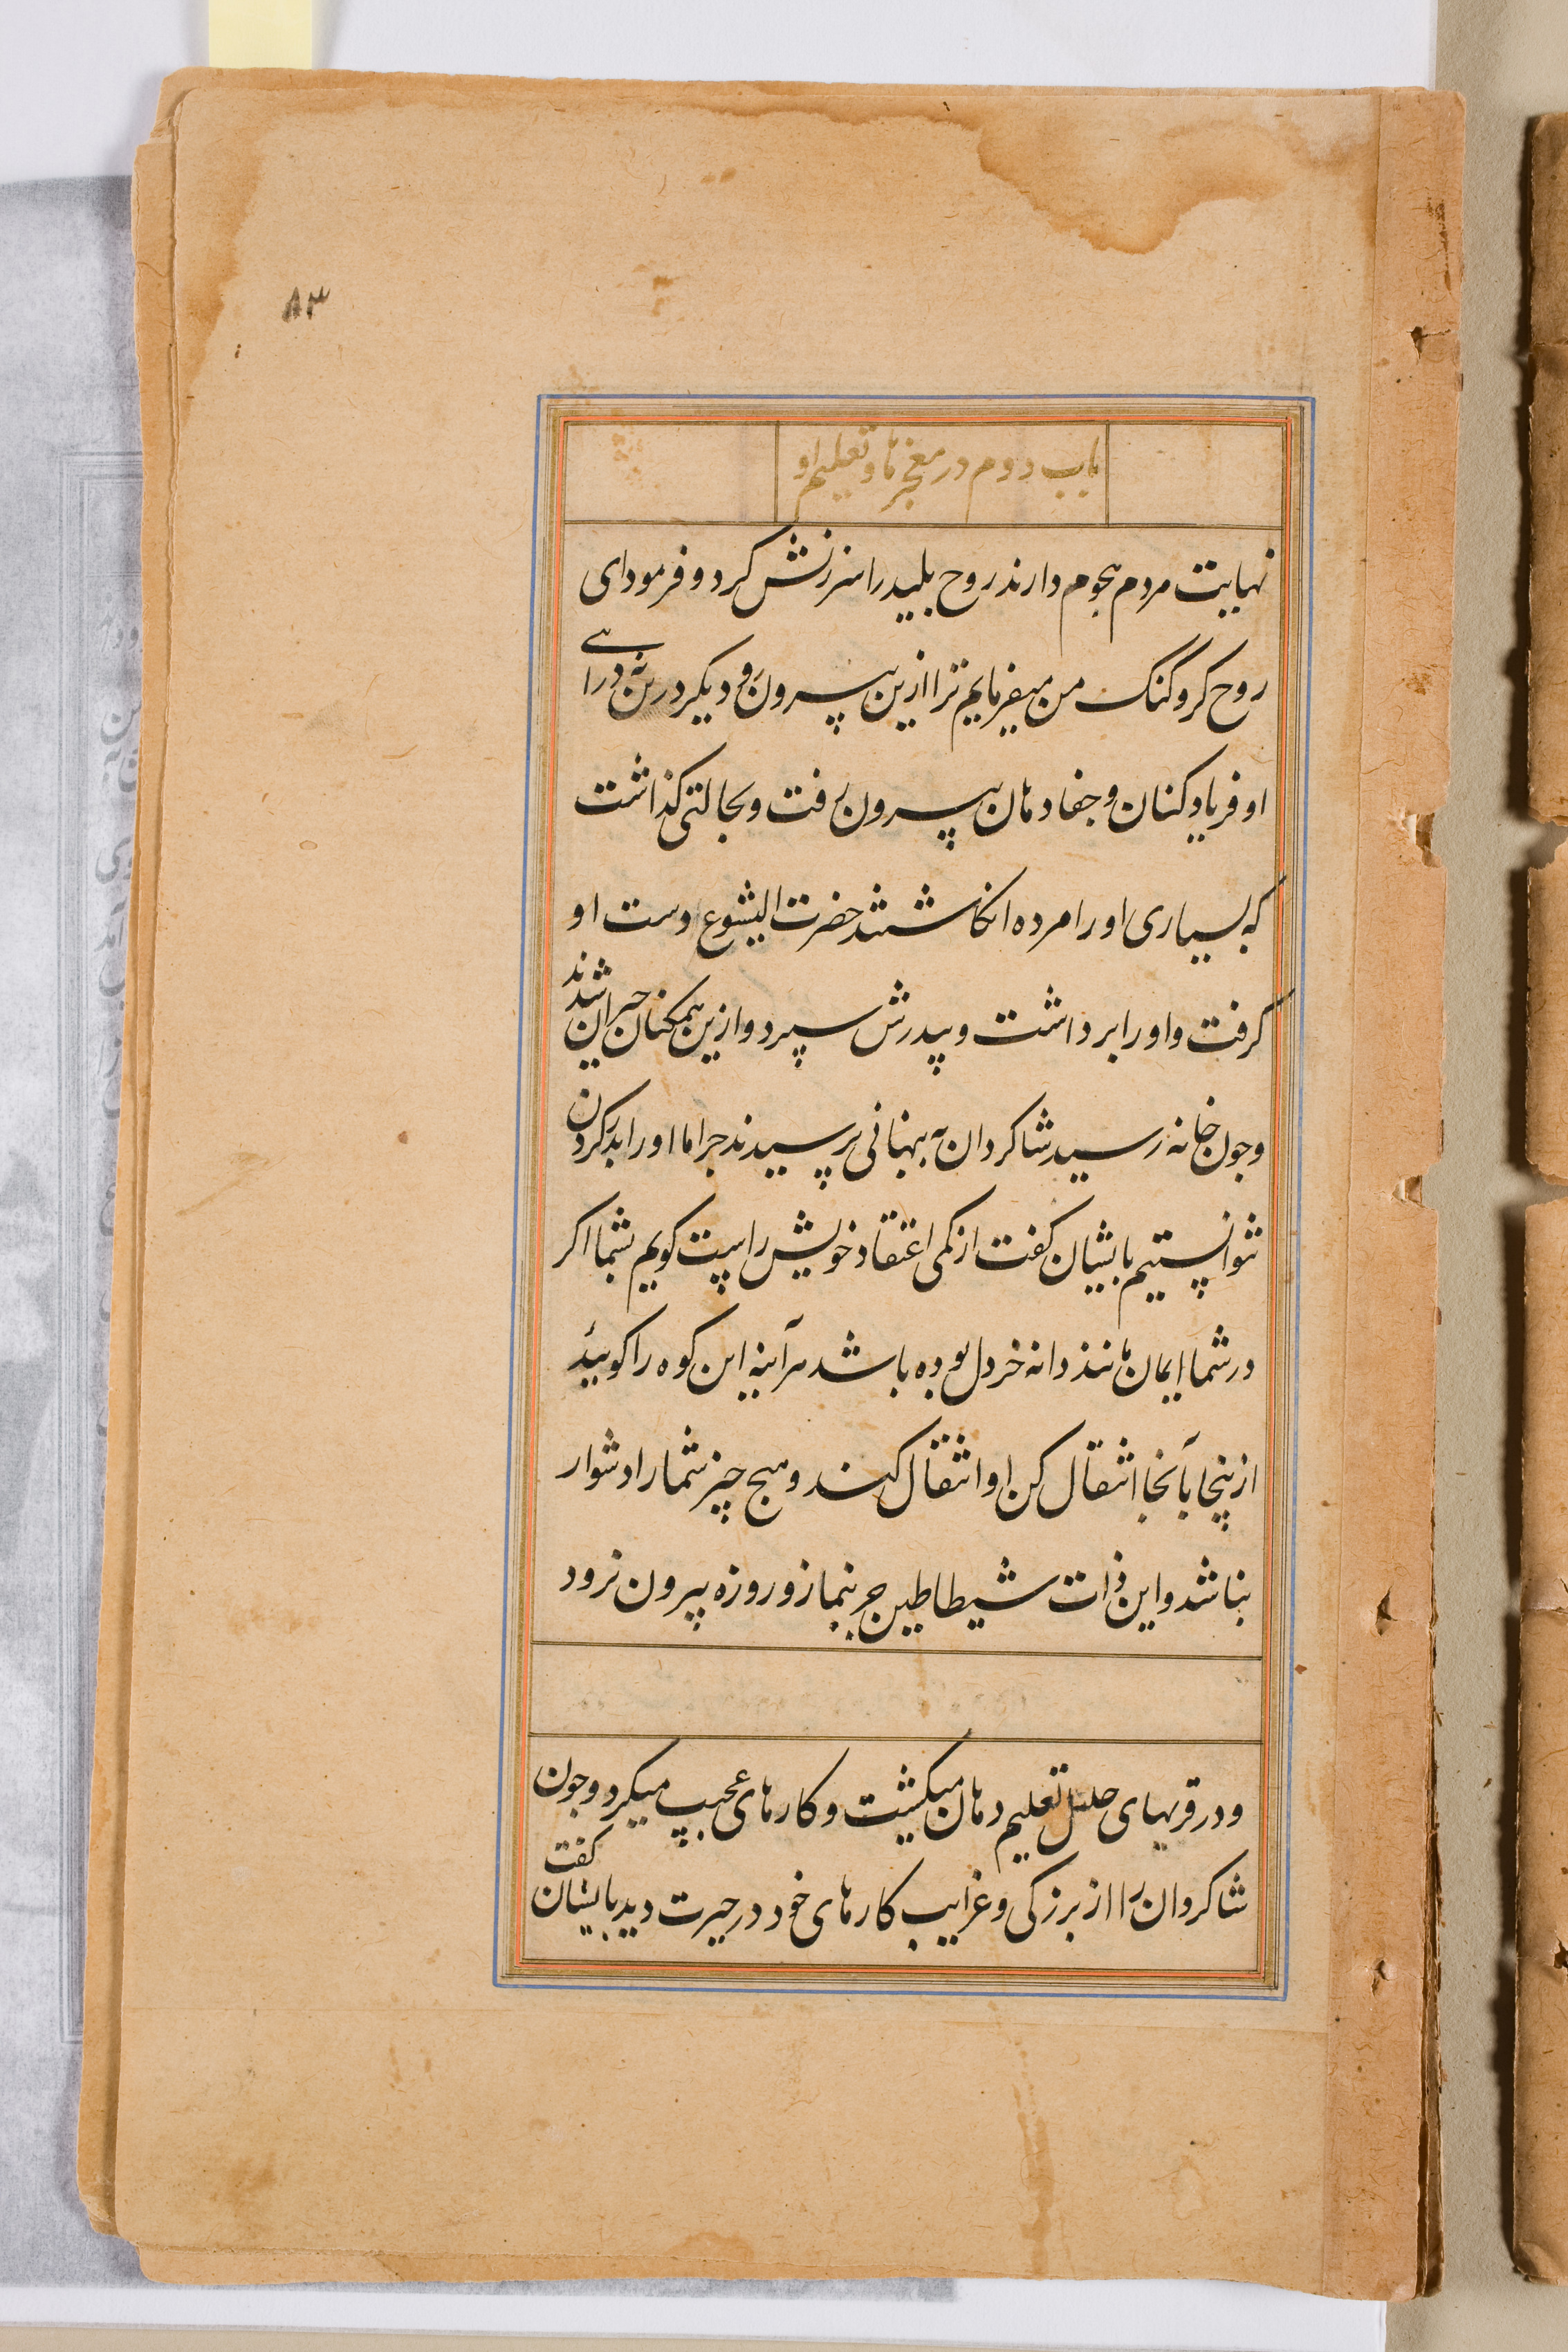 ۸۳
باب دوم در معجزها و تعلیم او
نهایت مردم هجوم دارند روح پلید را سرزنش کرد و فرمود ای
روح کر و گنگ من میفرمایم ترا ازین بیرون رو و دیگر درین نه درای
او فریاد کنان و جفا دهان بیرون رفت و بحالتی گذاشت
که بسیاری او را مرده انگاشتند حضرت الیشوع دست او
گرفت و او را برداشت و بپدرش سپرد و ازین همکنان حیران شدند
و چون خانه رسید شاگردان به پنهانی پرسیدند چرا ما او را بدر کردن
نتوانستیم بایشان گفت از کمی اعتقاد خویش راست گویم بشما اگر
در شما ایمان مانند دانه خردل بوده باشد هرآینه این کوه را گویید
ازینجا بآنجا انتقال کن او انتقال کند و هیچ چیز شما را دشوار
نباشد و این ذات شیطاطین جز بنماز و روزه بیرون نرود
و در قریهای جلیل تعلیم دهان میگشت و کارهای عجیب میکرد و چون
شاگردان را از بزرگی و غرایب کارهای خود در حیرت دید بایشان گفت